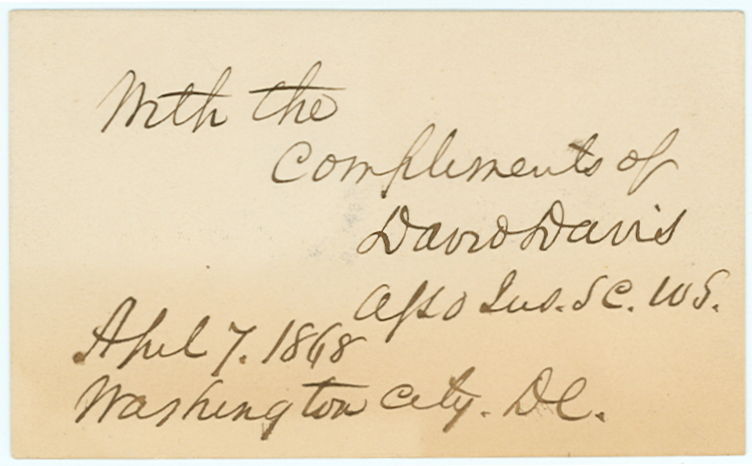 With the
Compliments of
David Davis
Asso Jus. S C. U S.
April 7. 1868
Washington City. D C.